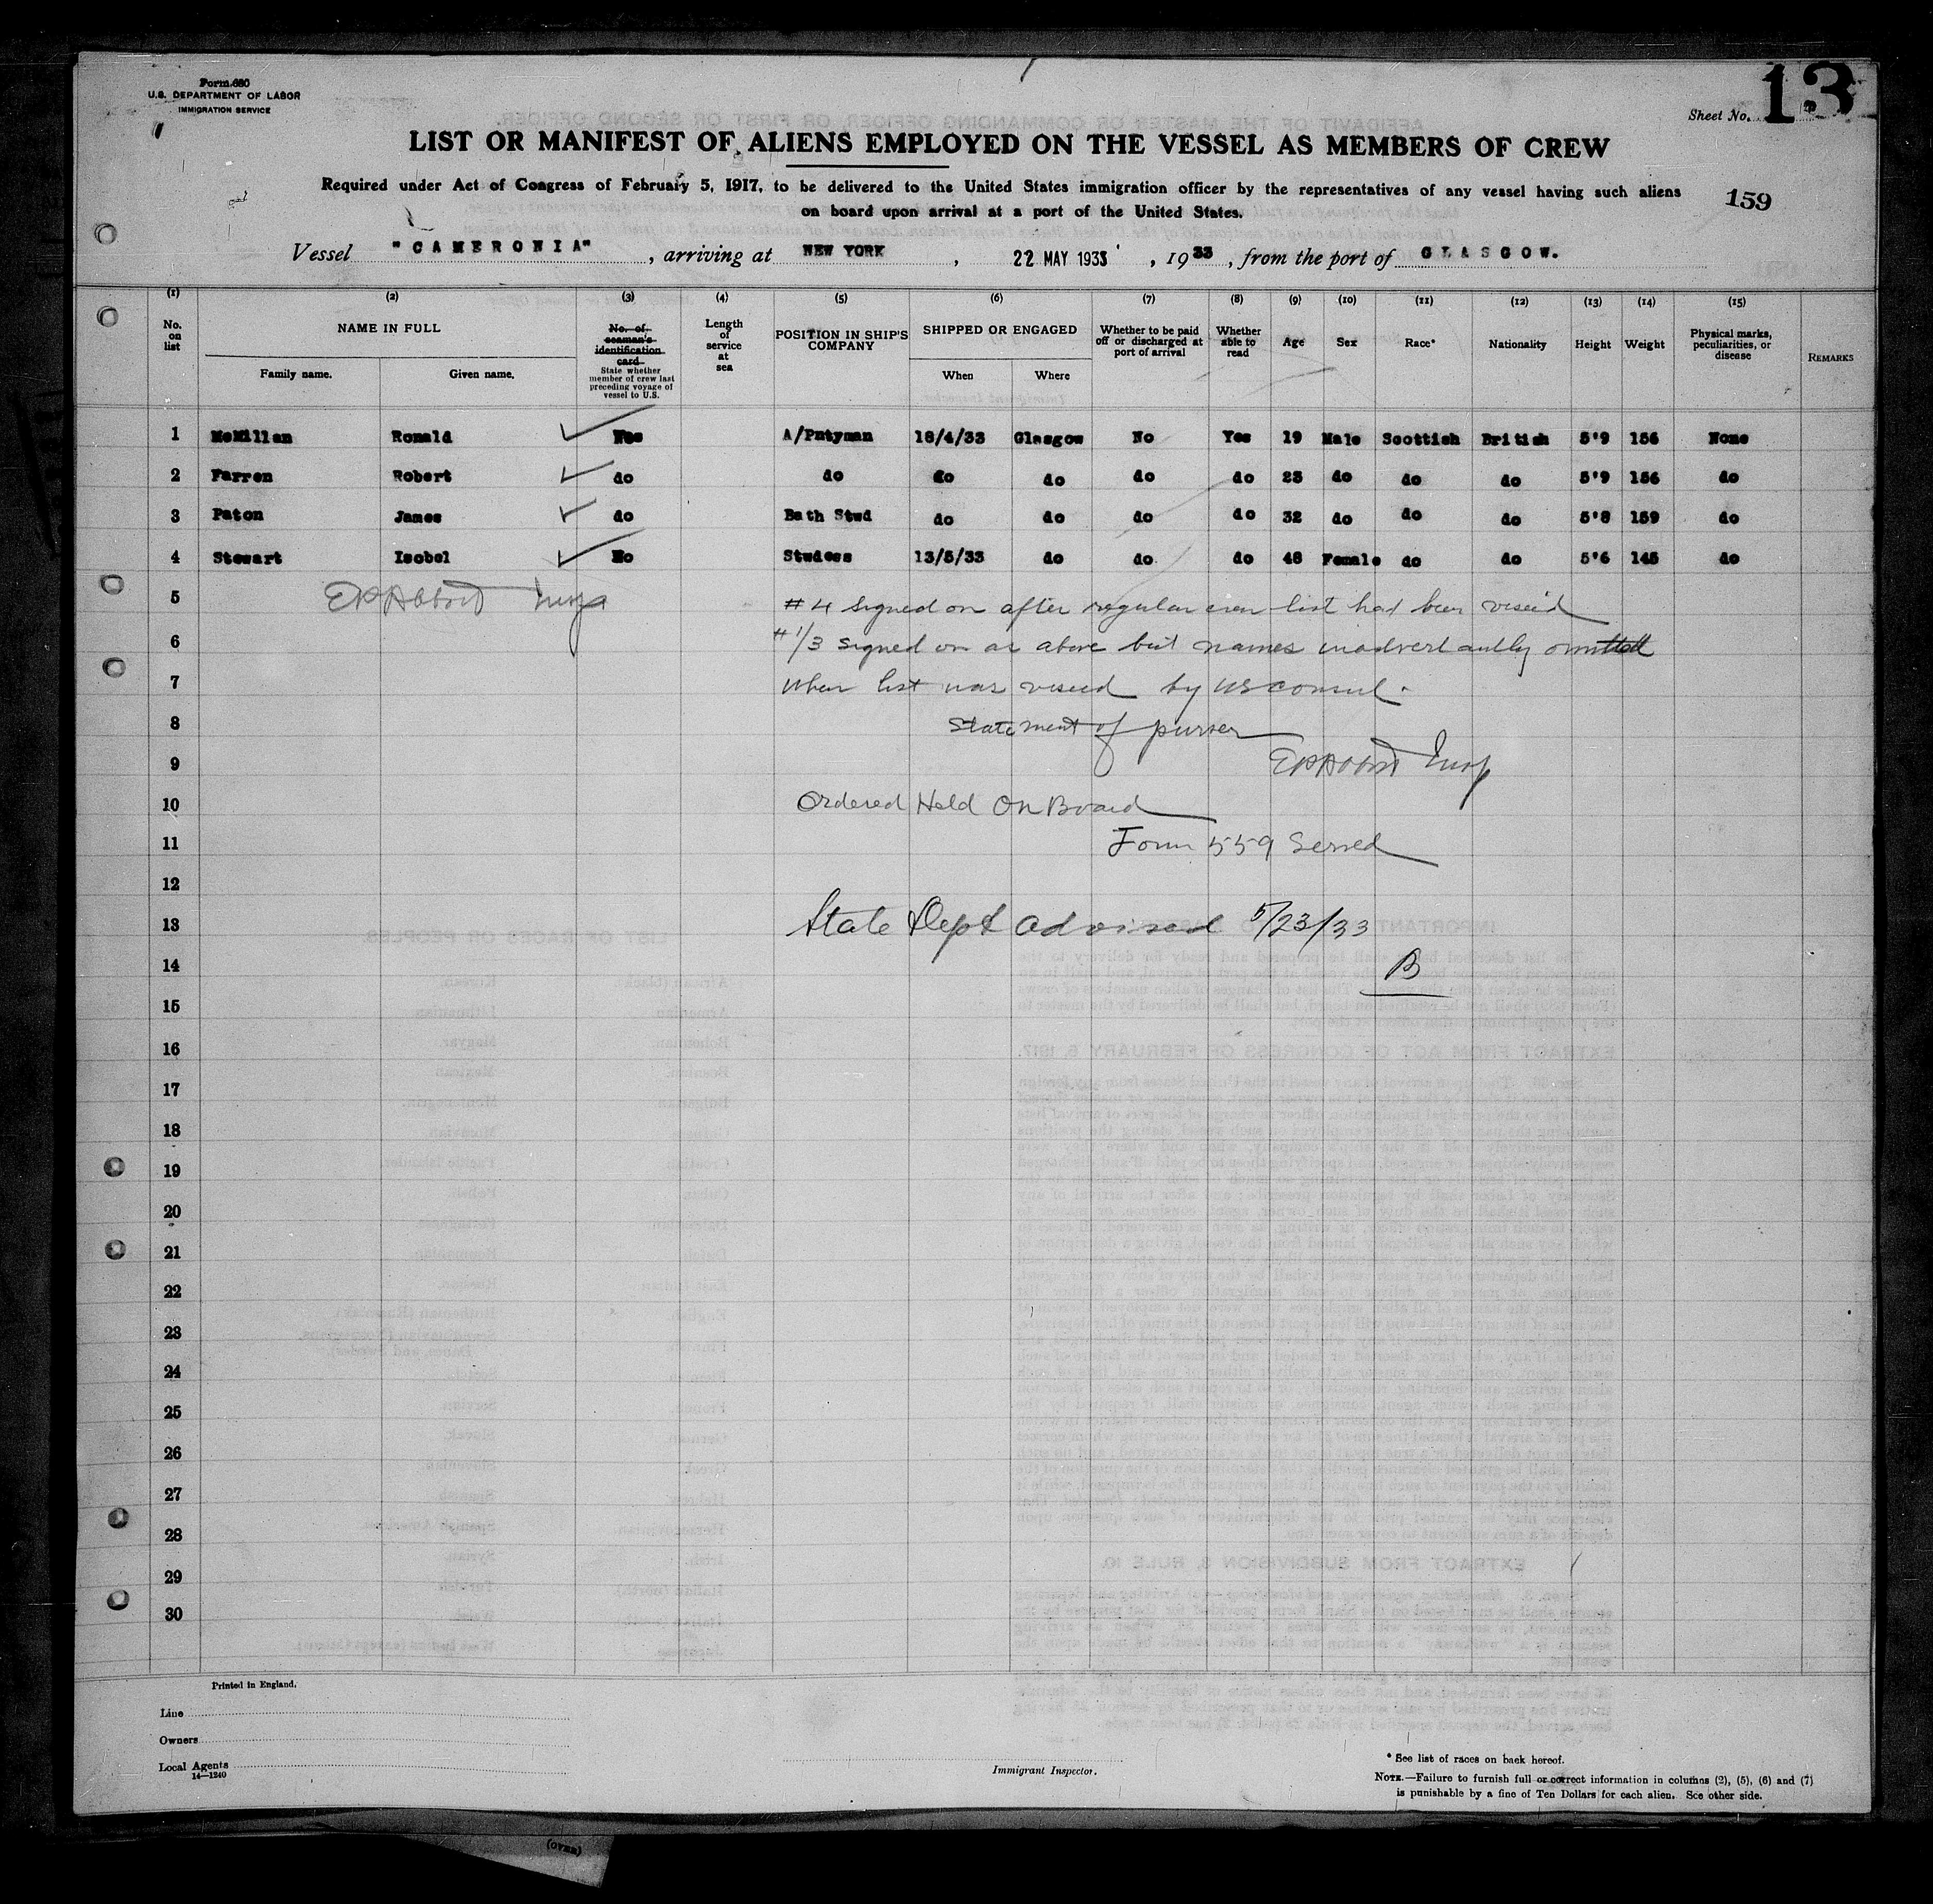 Form 680
U.S. DEPARTMENT OF LABOR
IMMIGRATION SERVICE
Sheet No. 13
LIST OR MANIFEST OF ALIENS EMPLOYED ON THE VESSEL AS MEMBERS OF CREW
Required under Act of Congress of February 5, 1917, to be delivered to the United States immigration officer by the representatives of any vessel having such aliens
on board upon arrival at a port of the United States.
159
Vessel "CAMERONIA", arriving at NEW YORK, 22 MAY 1933, 1933, from the port of GLASGOW.
(1) (2) (3) (4) (5) (6) (7) (8) (9) (10) (11) (12) (13) (14) (15)
No. on list NAME IN FULL Family name. Given name. No. of seaman's identification card State whether member of crew last preceding voyage of vessel to U.S. Length of service at sea POSITION IN SHIP'S COMPANY SHIPPED OR ENGAGED When Where Whether to be paid off or discharged at port of arrival Whether able to read Age Sex Race* Nationality Height Weight Physical marks, peculiarities, or disease REMARKS
1 McMillan Ronald A/Pntyman 18/4/33 Glasgow No Yes 19 Male Scottish British 5'9 156 None
2 Farren Robert do do do do do do 23 do do do 5'9 156 do
3 Paton James do Bath Stwd do do do do 32 do do do 5'8 159 do
4 Stewart Isobel No Stwdess 13/5/33 do do do 48 Female do do 5'6 145 do
5 #4 signed on after regular crew list had been viseid
6 #1/3 signed on as above but names inadvertantly omitted
7 when list was viseed by US consul.
8 Statement of purser
9
10 Ordered Held On Board
11 Form 559 Served
12
13 State Dept advised 5/23/33
14 B
15
16
17
18
19
20
21
22
23
24
25
26
27
28
29
30
Printed in England.
Line
Owners
Local Agents
14—1240
Immigrant Inspector.
* See list of races on back hereof.
NOTE.—Failure to furnish full or correct information in columns (2), (5), (6) and (7)
is punishable by a fine of Ten Dollars for each alien. See other side.
(OVER)